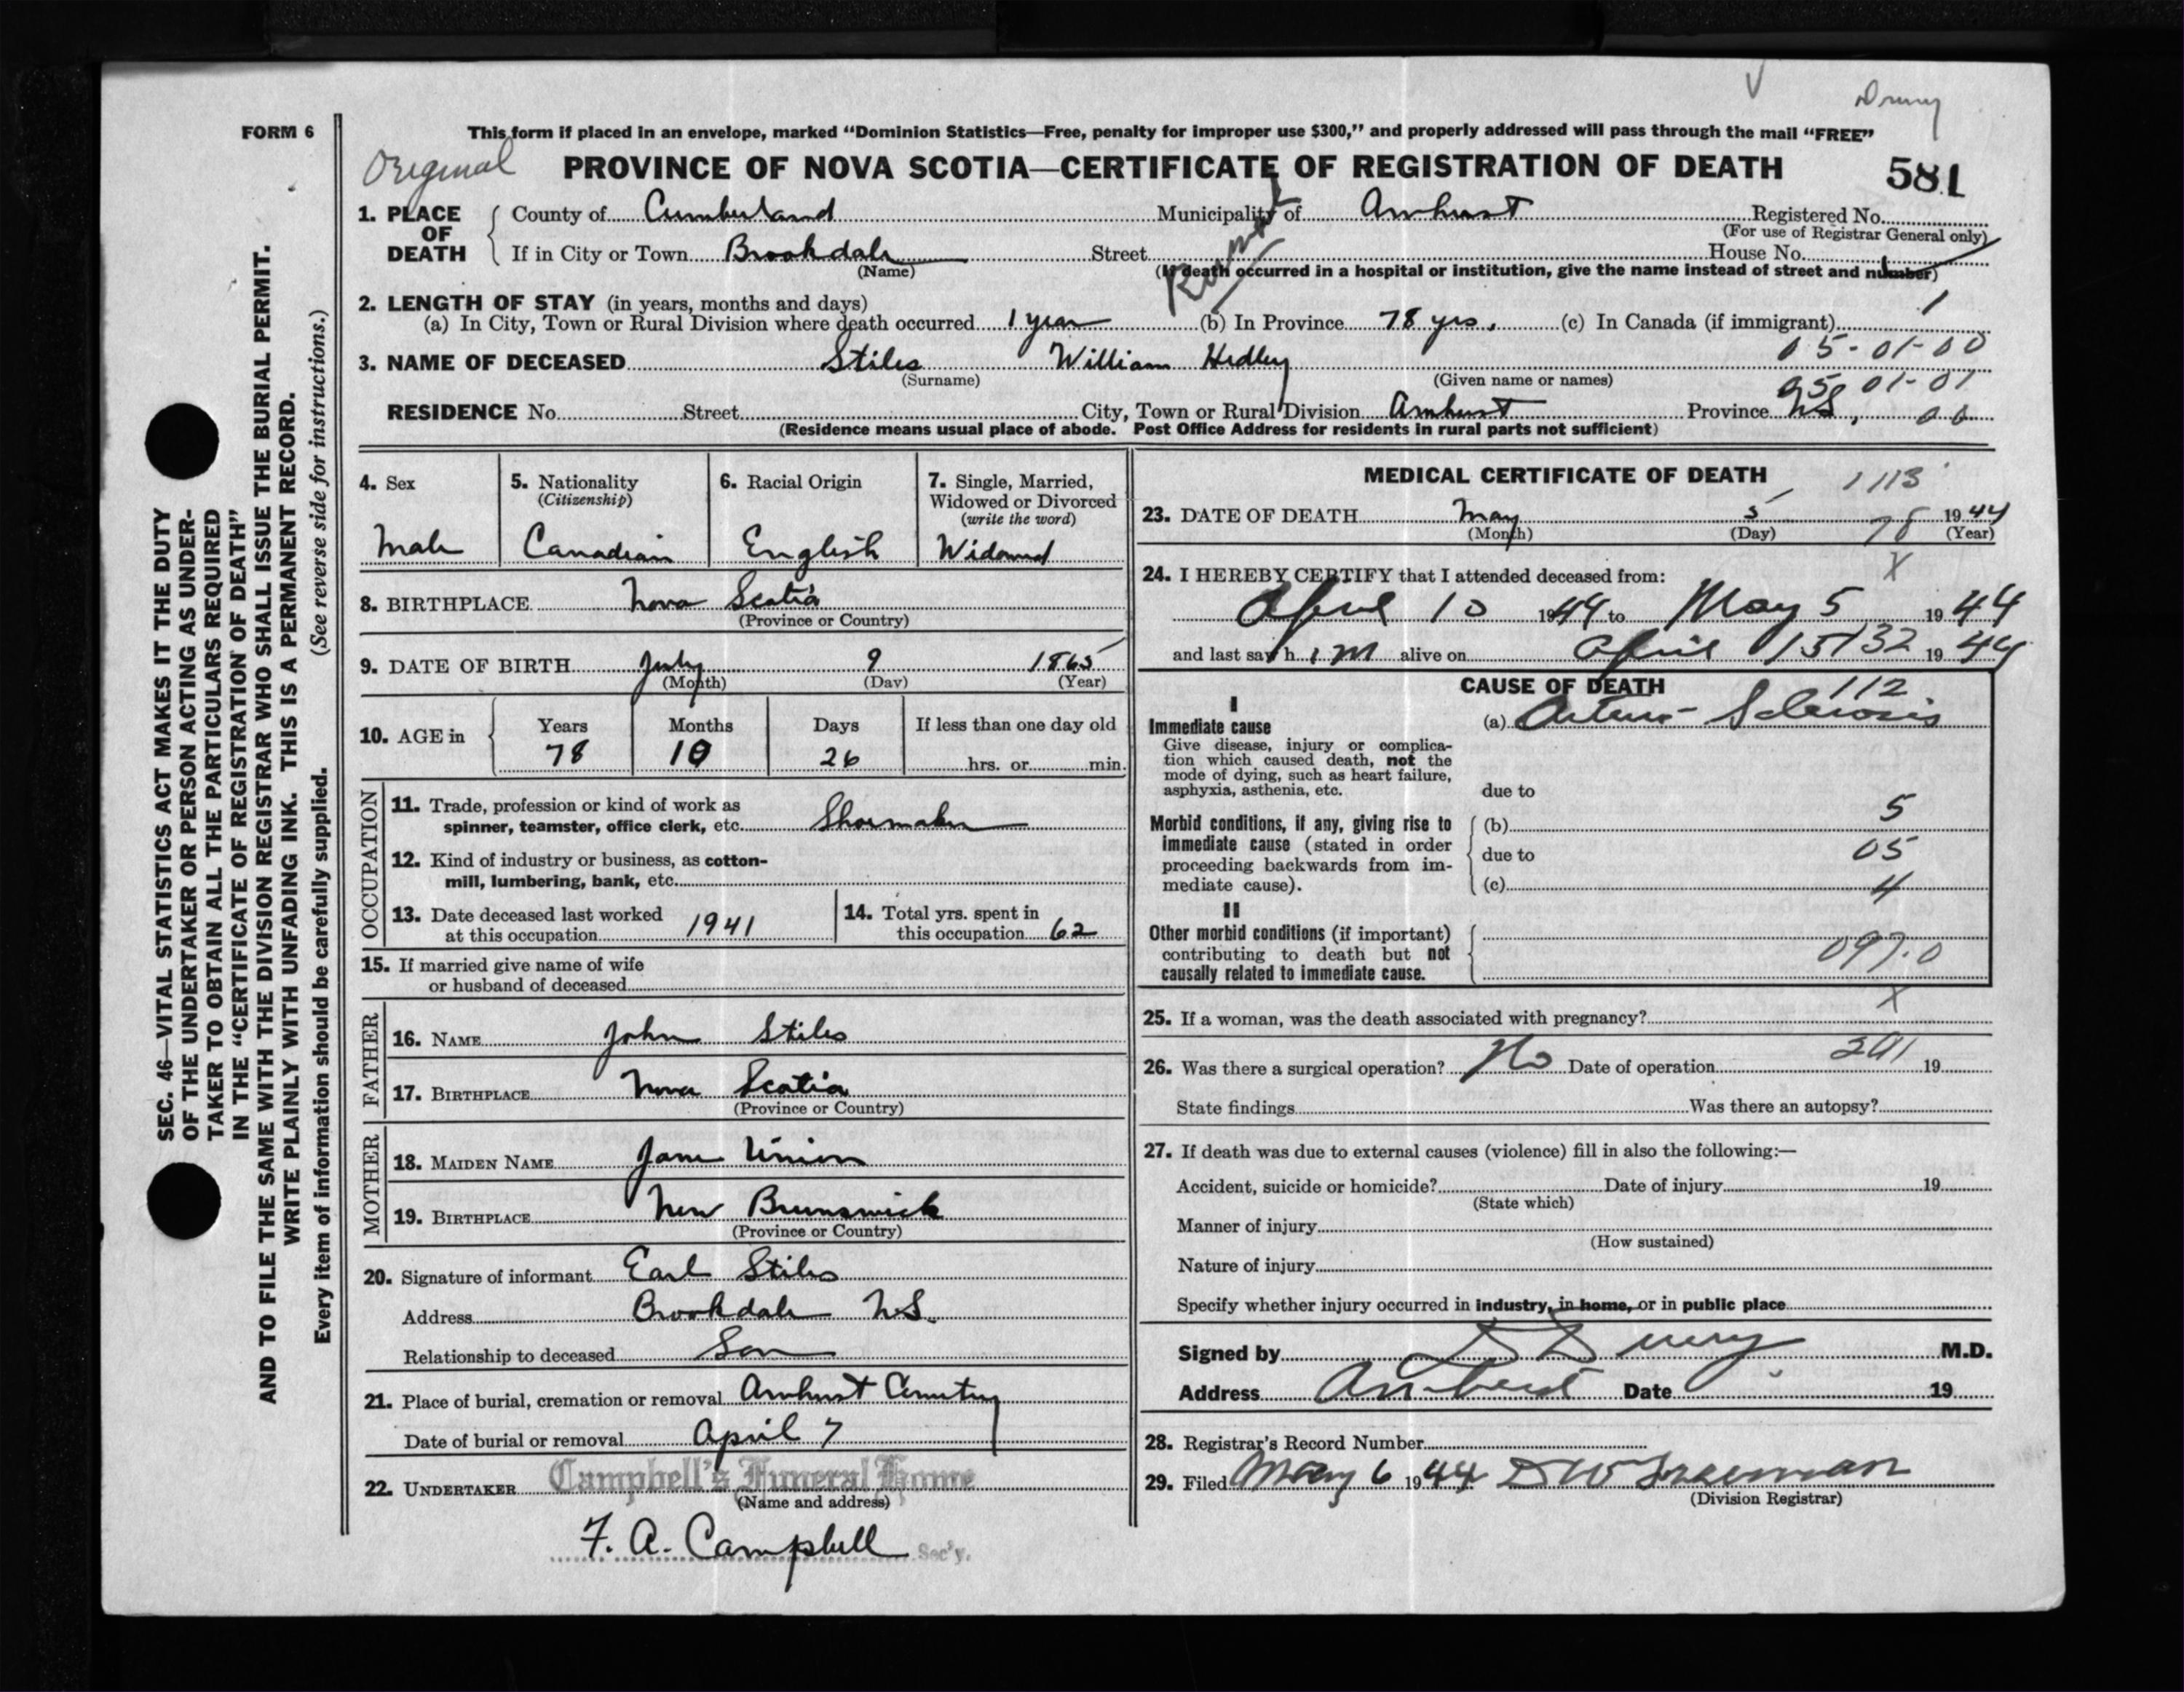 Drury
FORM 6
This form if placed in an envelope, marked “Dominion Statistics—Free, penalty for improper use $300,” and properly addressed will pass through the mail “FREE”
Original
PROVINCE OF NOVA SCOTIA—CERTIFICATE OF REGISTRATION OF DEATH
581
1. PLACE OF DEATH
County of Cumberland Municipality of Amherst Registered No.
(For use of Registrar General only)
If in City or Town Brookdale Street House No.
(Name) (If death occurred in a hospital or institution, give the name instead of street and number)
2. LENGTH OF STAY (in years, months and days)
1
(a) In City, Town or Rural Division where death occurred 1 year (b) In Province 78 yrs. (c) In Canada (if immigrant)
05-01-00
3. NAME OF DECEASED Stiles William Hedley
(Surname) (Given name or names)
05 01-01
RESIDENCE No. Street City, Town or Rural Division Amherst Province NS, 00
(Residence means usual place of abode. Post Office Address for residents in rural parts not sufficient)
SEC. 46—VITAL STATISTICS ACT MAKES IT THE DUTY
OF THE UNDERTAKER OR PERSON ACTING AS UNDER-
TAKER TO OBTAIN ALL THE PARTICULARS REQUIRED
IN THE “CERTIFICATE OF REGISTRATION OF DEATH”
AND TO FILE THE SAME WITH THE DIVISION REGISTRAR WHO SHALL ISSUE THE BURIAL PERMIT.
WRITE PLAINLY WITH UNFADING INK. THIS IS A PERMANENT RECORD.
Every item of information should be carefully supplied. (See reverse side for instructions.)
4. Sex
Male
5. Nationality
(Citizenship)
Canadian
6. Racial Origin
English
7. Single, Married,
Widowed or Divorced
(write the word)
Widowed
8. BIRTHPLACE Nova Scotia
(Province or Country)
9. DATE OF BIRTH July 9 1865
(Month) (Day) (Year)
10. AGE in
Years Months Days If less than one day old
78 10 26 hrs. or min.
OCCUPATION
11. Trade, profession or kind of work as
spinner, teamster, office clerk, etc. Shoemaker
12. Kind of industry or business, as cotton-
mill, lumbering, bank, etc.
13. Date deceased last worked
at this occupation 1941
14. Total yrs. spent in
this occupation 62
15. If married give name of wife
or husband of deceased
FATHER
16. NAME John Stiles
17. BIRTHPLACE Nova Scotia
(Province or Country)
MOTHER
18. MAIDEN NAME Jane
19. BIRTHPLACE New Brunswick
(Province or Country)
20. Signature of informant Earl Stiles
Address Brookdale NS.
Relationship to deceased Son
21. Place of burial, cremation or removal Amherst Cemetery
Date of burial or removal April 7
22. UNDERTAKER Campbell's Funeral Home
(Name and address)
F. A. Campbell Sec'y.
MEDICAL CERTIFICATE OF DEATH
1113
23. DATE OF DEATH May 5 1944
(Month) (Day) (Year)
78
X
24. I HEREBY CERTIFY that I attended deceased from:
April 10 1944 to May 5 1944
and last saw him alive on April 15 132 1944
CAUSE OF DEATH
112
I
Immediate cause
Give disease, injury or complica-
tion which caused death, not the
mode of dying, such as heart failure,
asphyxia, asthenia, etc.
(a) Arterio-Sclerosis
due to
5
Morbid conditions, if any, giving rise to
immediate cause (stated in order
proceeding backwards from im-
mediate cause).
(b)
due to
05
(c) 4
II
Other morbid conditions (if important)
contributing to death but not
causally related to immediate cause.
097.0
X
25. If a woman, was the death associated with pregnancy?
26. Was there a surgical operation? No Date of operation 19
State findings Was there an autopsy?
27. If death was due to external causes (violence) fill in also the following:—
Accident, suicide or homicide? Date of injury 19
(State which)
Manner of injury
(How sustained)
Nature of injury
Specify whether injury occurred in industry, in home, or in public place
Signed by D Drury M.D.
Address Amherst Date 19
28. Registrar's Record Number
29. Filed May 6 1944 D W Freeman
(Division Registrar)